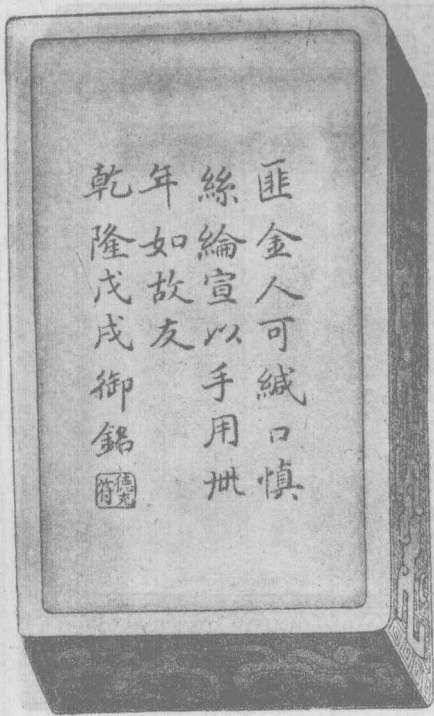 匪金人可緘口慎
絲綸宣以手用卌
年如故友
乾隆戊戌御銘
德充符